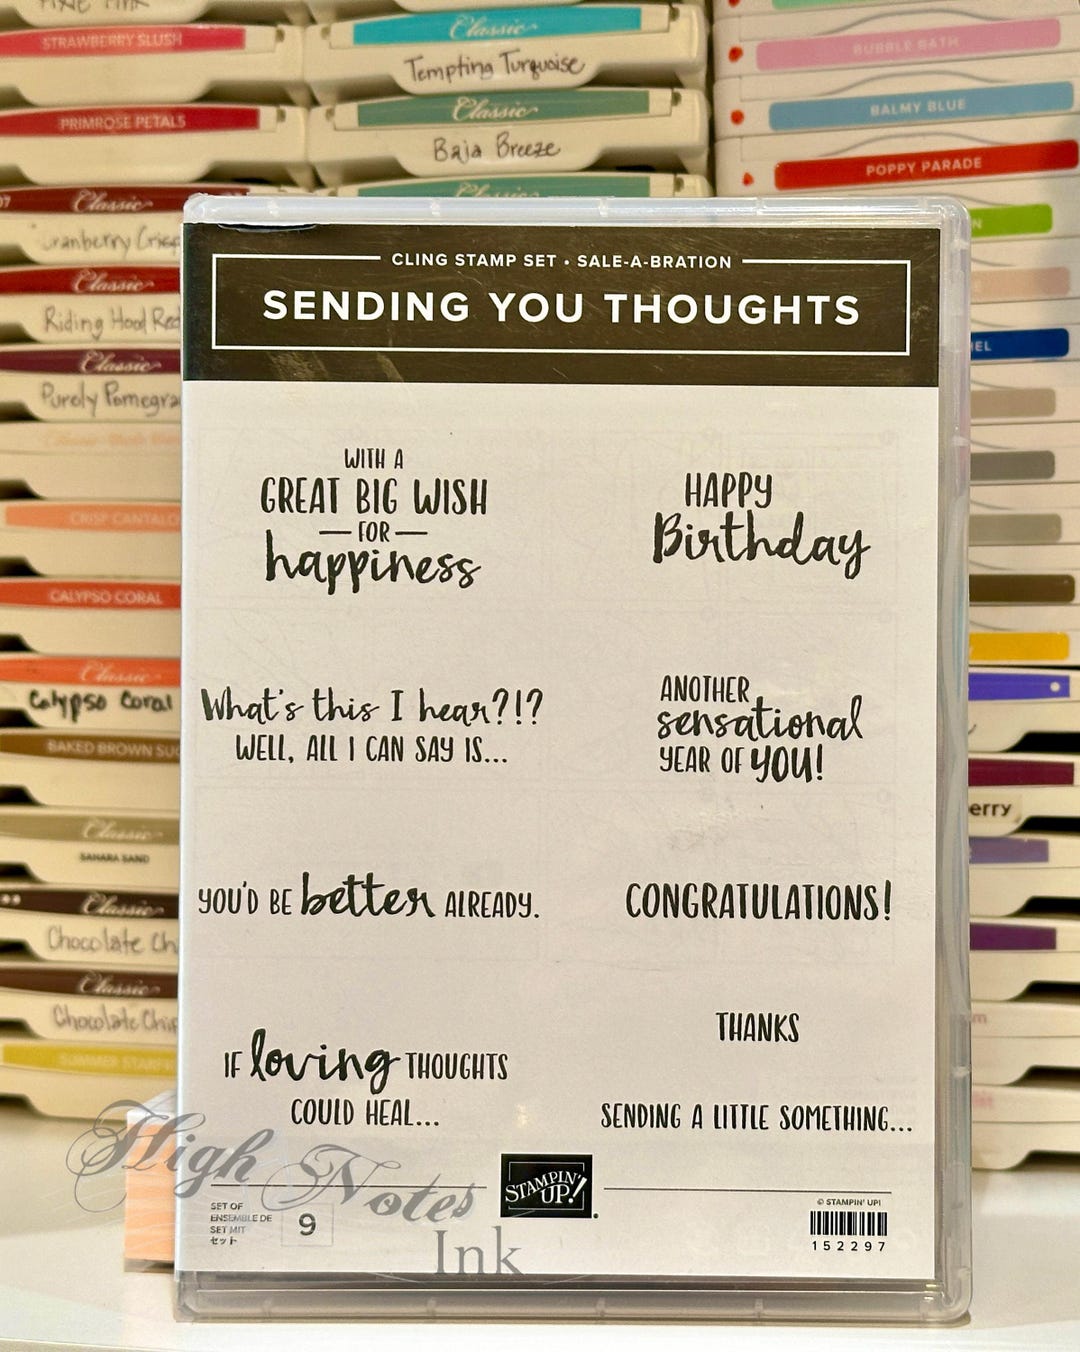 STRAWBERRY SLUSH
Classic
Tempting Turquoise
BUBBLE BATH
PRIMROSE PETALS
Classic
Baja Breeze
BALMY BLUE
POPPY PARADE
07 Classic
Classic
Cranberry Crisp
Classic
Riding Hood Red
Classic
Purely
CALYPSO CORAL
Classic
Calypso Coral
BAKED BROWN
Classic
SAHARA SAND
Classic
Chocolate
Classic
Chocolate Chip
SUMMER
CLING STAMP SET • SALE-A-BRATION
SENDING YOU THOUGHTS
WITH A
GREAT BIG WISH
— FOR —
happiness
HAPPY
Birthday
What's this I hear?!?
WELL, ALL I CAN SAY IS...
ANOTHER
sensational
YEAR OF YOU!
YOU'D BE better ALREADY.
CONGRATULATIONS!
IF loving THOUGHTS
COULD HEAL...
THANKS
SENDING A LITTLE SOMETHING...
High Notes
Ink
STAMPIN'
UP!
SET OF
ENSEMBLE DE
SET MIT
セット
9
© STAMPIN' UP!
152297